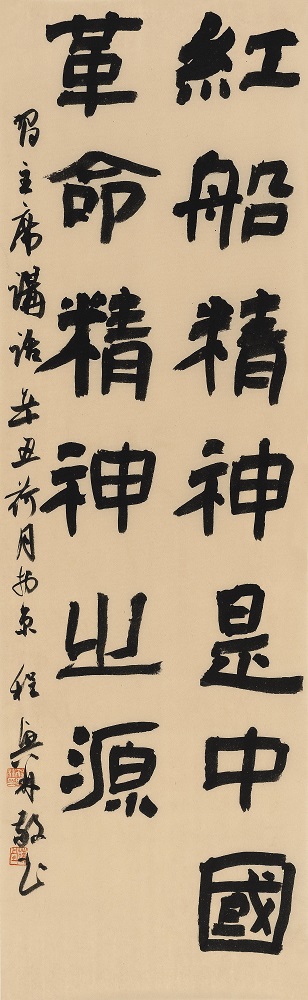 紅船精神是中國
革命精神之源
習主席講話辛丑荷月於京程與林敬书